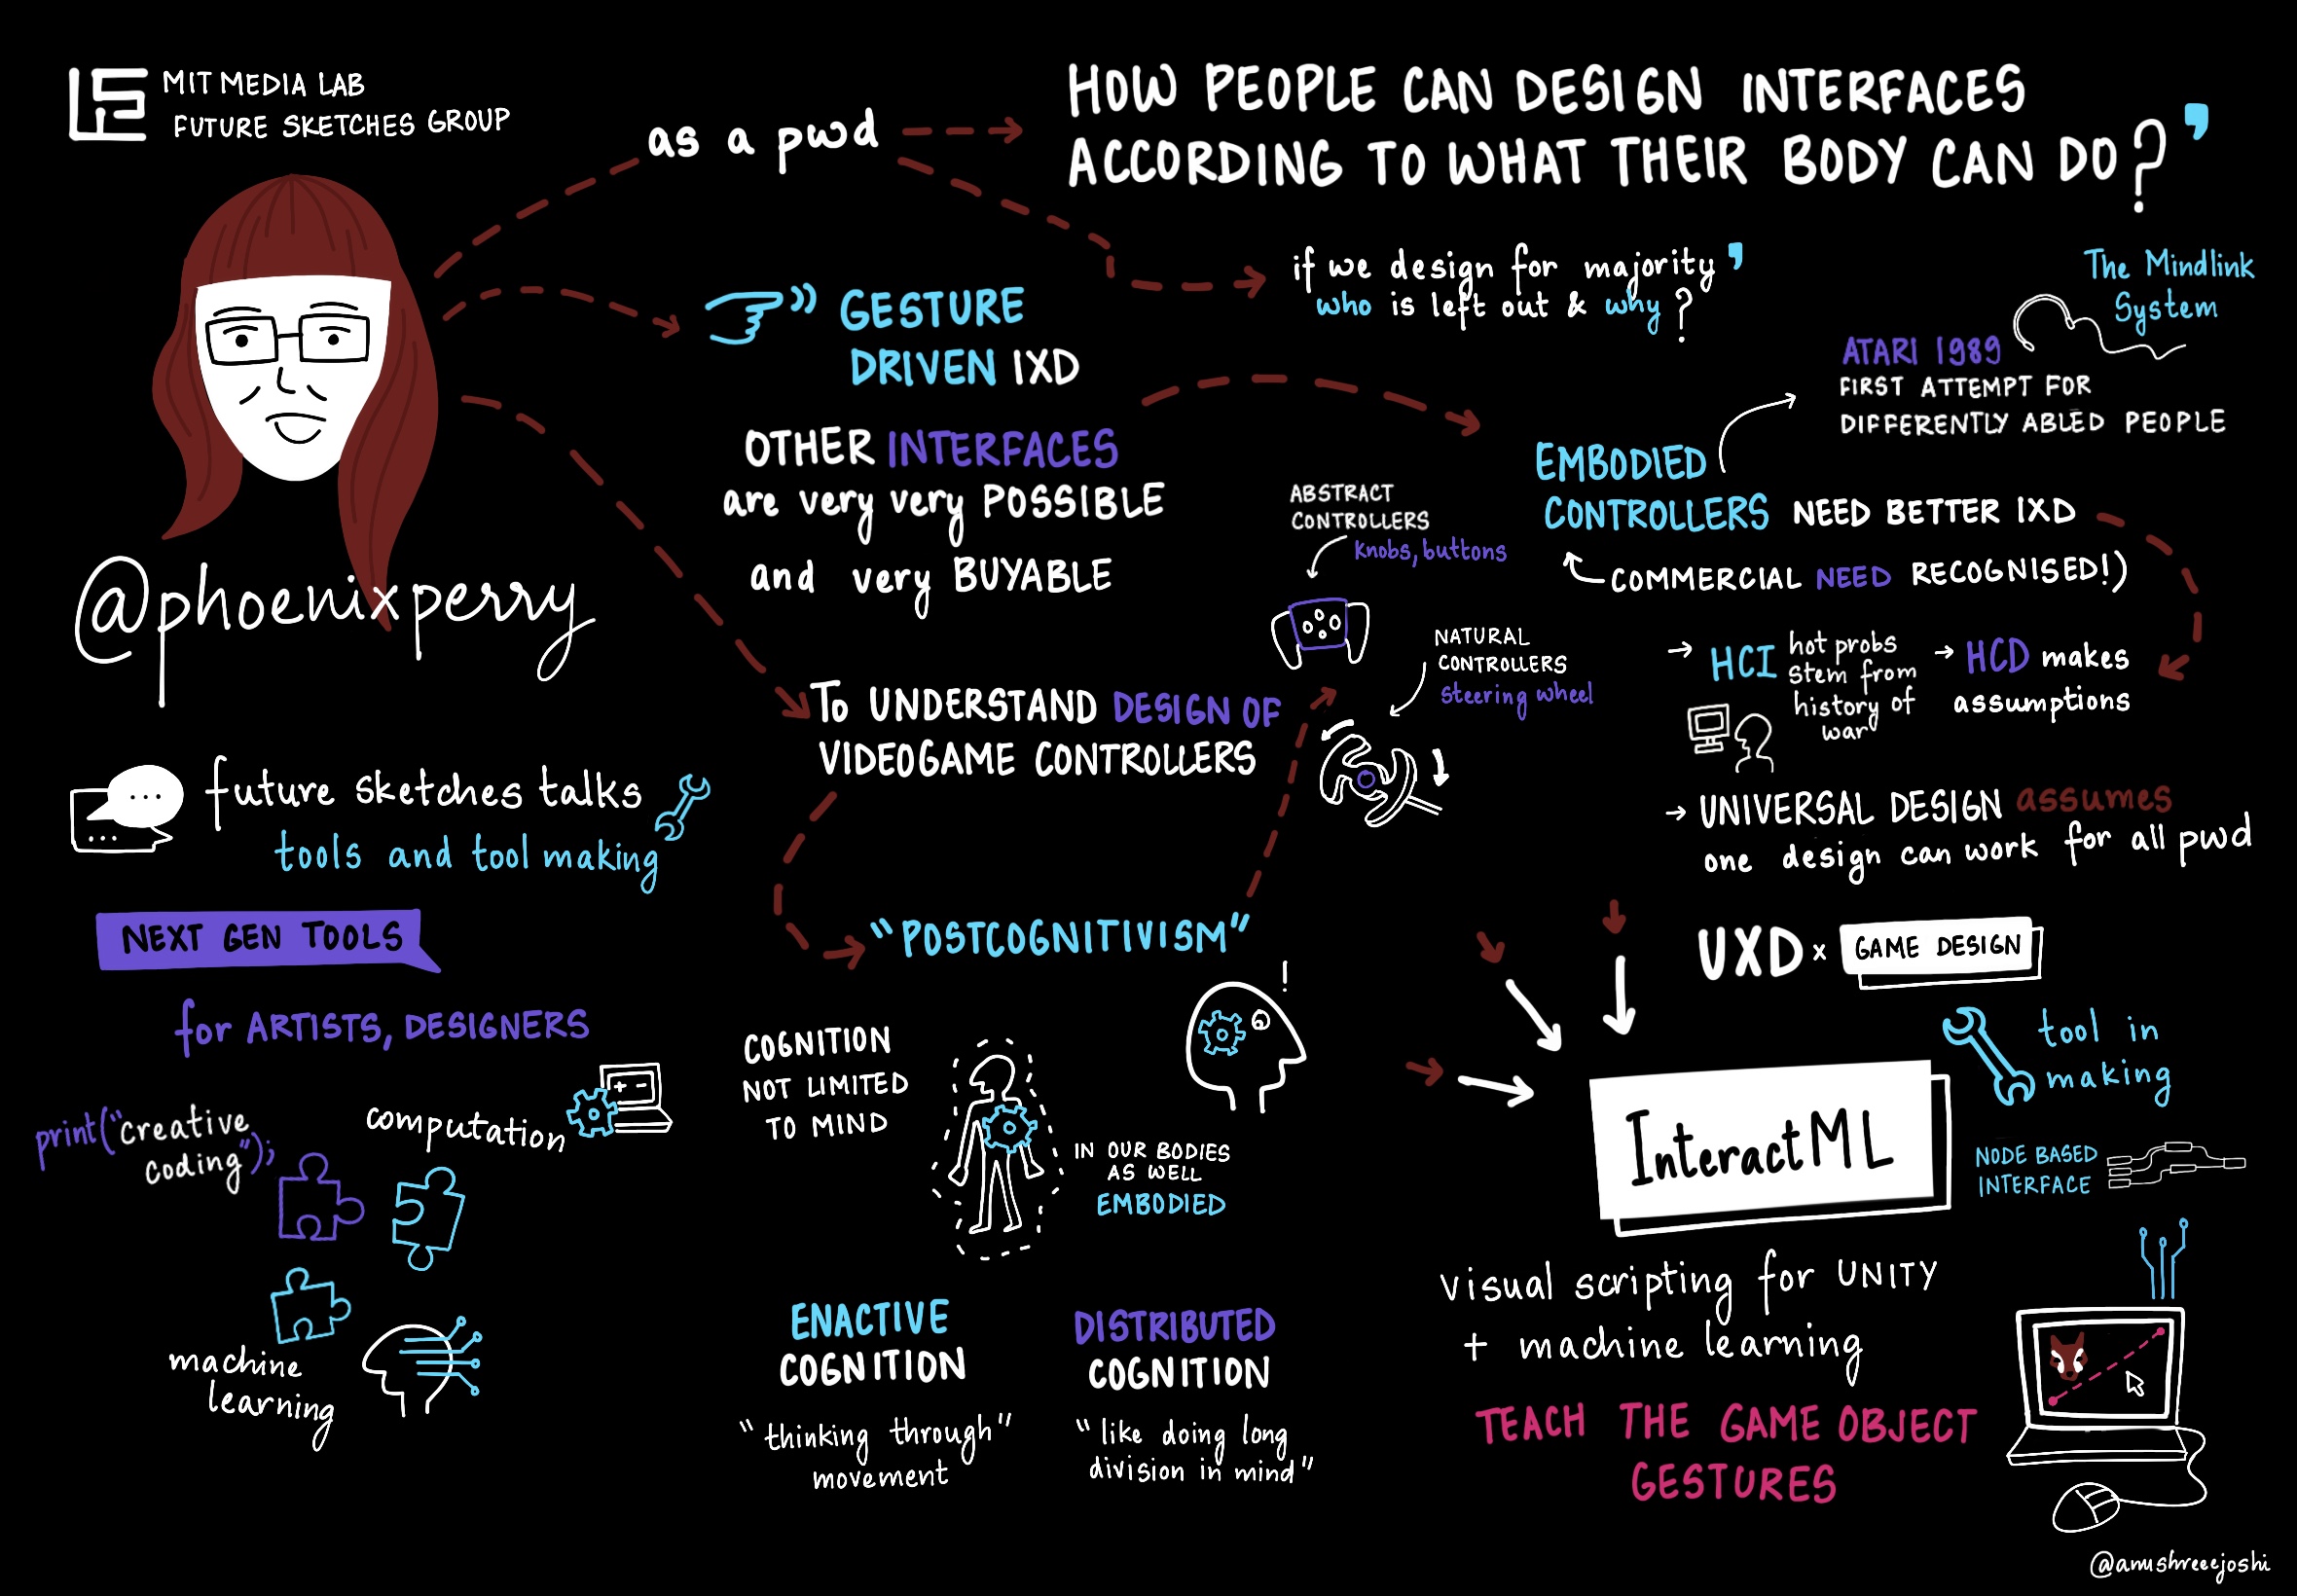 MIT MEDIA LAB
FUTURE SKETCHES GROUP
@phoenixperry
future sketches talks
tools and tool making
NEXT GEN TOOLS
for ARTISTS, DESIGNERS
print("creative
coding");
computation
machine
learning
as a pwd
HOW PEOPLE CAN DESIGN INTERFACES
ACCORDING TO WHAT THEIR BODY CAN DO?
if we design for majority
who is left out & why?
GESTURE
DRIVEN IXD
OTHER INTERFACES
are very very POSSIBLE
and very BUYABLE
To UNDERSTAND DESIGN OF
VIDEOGAME CONTROLLERS
ABSTRACT
CONTROLLERS
knobs, buttons
NATURAL
CONTROLLERS
steering wheel
"POSTCOGNITIVISM"
COGNITION
NOT LIMITED
TO MIND
IN OUR BODIES
AS WELL
EMBODIED
ENACTIVE
COGNITION
"thinking through"
movement
DISTRIBUTED
COGNITION
"like doing long
division in mind"
The Mindlink
System
ATARI 1989
FIRST ATTEMPT FOR
DIFFERENTLY ABLED PEOPLE
EMBODIED
CONTROLLERS NEED BETTER IXD
COMMERCIAL NEED RECOGNISED!)
HCI hot probs
stem from
history of
war
HCD makes
assumptions
UNIVERSAL DESIGN assumes
one design can work for all pwd
UXD x GAME DESIGN
tool in
making
InteractML
NODE BASED
INTERFACE
visual scripting for UNITY
+ machine learning
TEACH THE GAME OBJECT
GESTURES
@anushreeejoshi